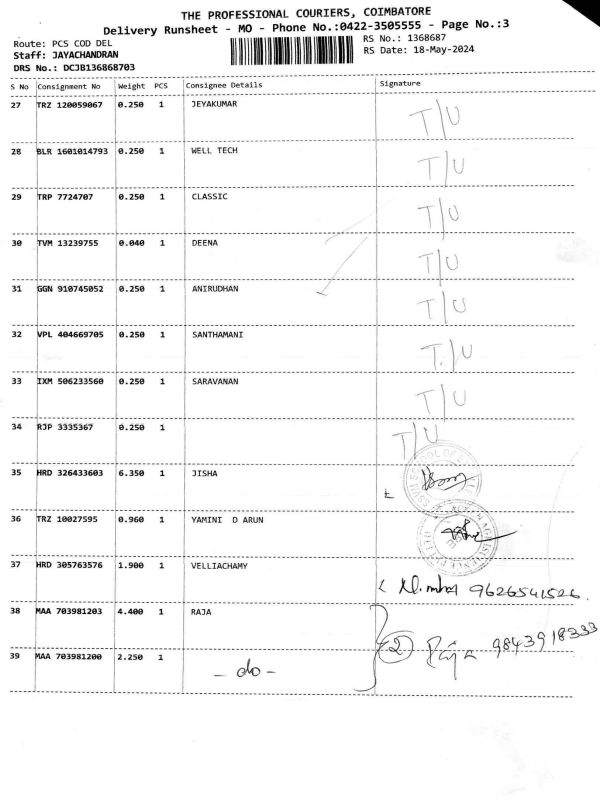 THE PROFESSIONAL COURIERS, COIMBATORE
Delivery Runsheet - MO - Phone No.:0422-3505555 - Page No.:3
Route: PCS COD DEL
RS No.: 1368687
Staff: JAYACHANDRAN
RS Date: 18-May-2024
DRS No.: DCJB136868703
S No Consignment No Weight PCS Consignee Details Signature
27 TRZ 120059067 0.250 1 JEYAKUMAR T/U
28 BLR 1601014793 0.250 1 WELL TECH T/U
29 TRP 7724707 0.250 1 CLASSIC T/U
30 TVM 13239755 0.040 1 DEENA T/U
31 GGN 910745052 0.250 1 ANIRUDHAN T/U
32 VPL 404669705 0.250 1 SANTHAMANI T./U
33 IXM 506233560 0.250 1 SARAVANAN T/U
34 RJP 3335367 0.250 1 T/U
35 HRD 326433603 6.350 1 JISHA
36 TRZ 10027595 0.960 1 YAMINI D ARUN
37 HRD 305763576 1.900 1 VELLIACHAMY
9626541526.
38 MAA 703981203 4.400 1 RAJA
2 Raja 9843918333
39 MAA 703981200 2.250 1 - do -